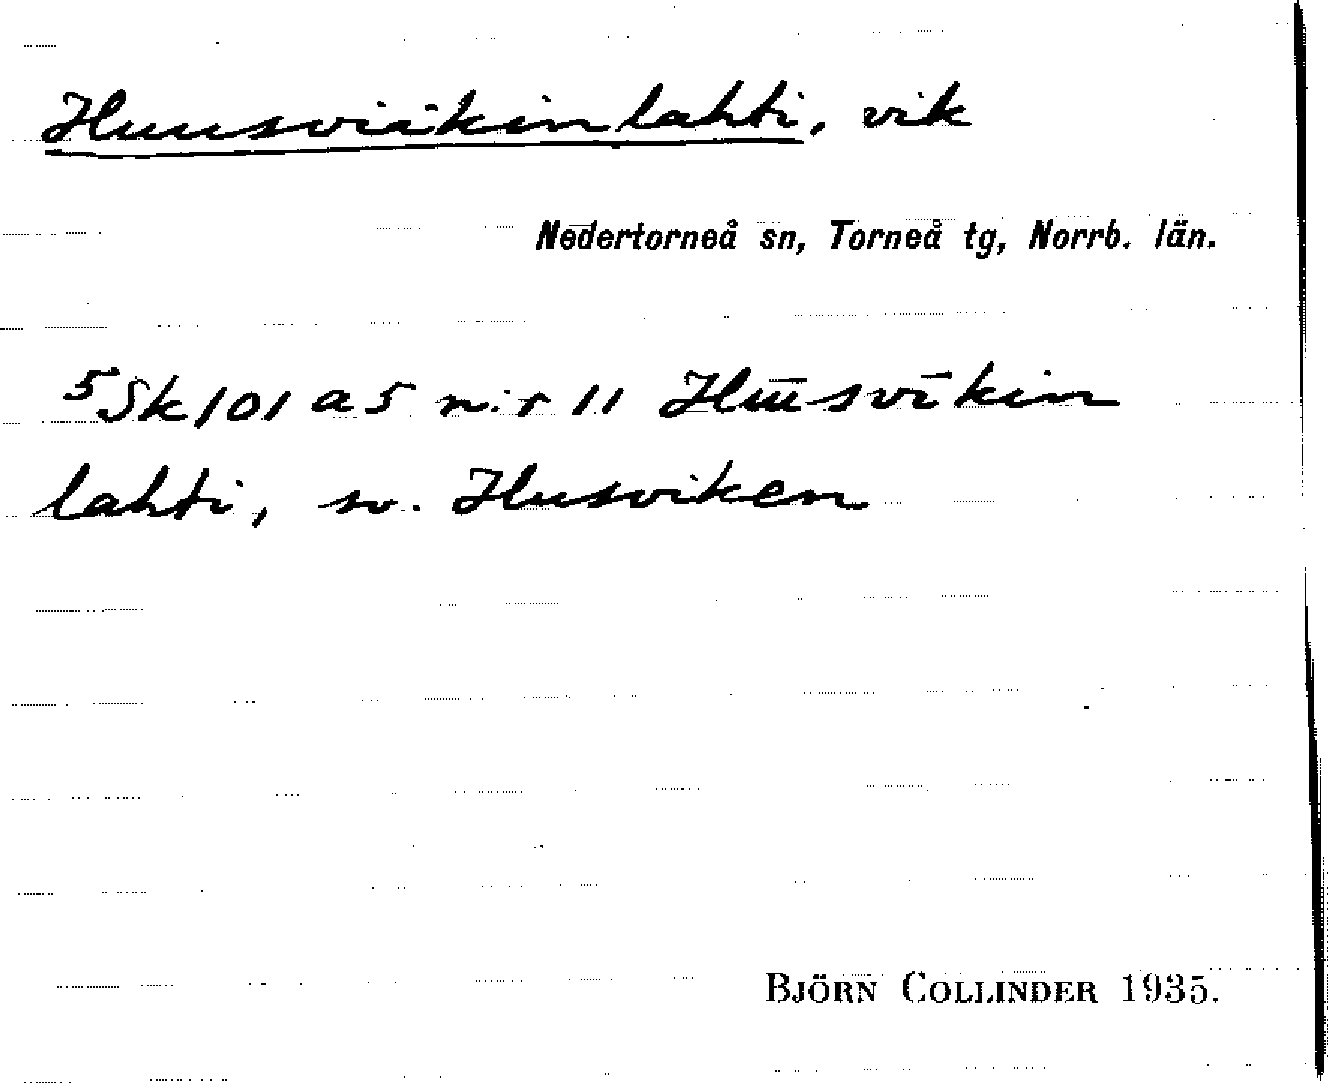 Huusviikinlahti, vik
Nedertorneå sn, Torneå tg, Norrb. län.
5Sk101 a5 n:r 11 Hūsvīkin
lahti, sv. Husviken
BJÖRN COLLINDER 1935.